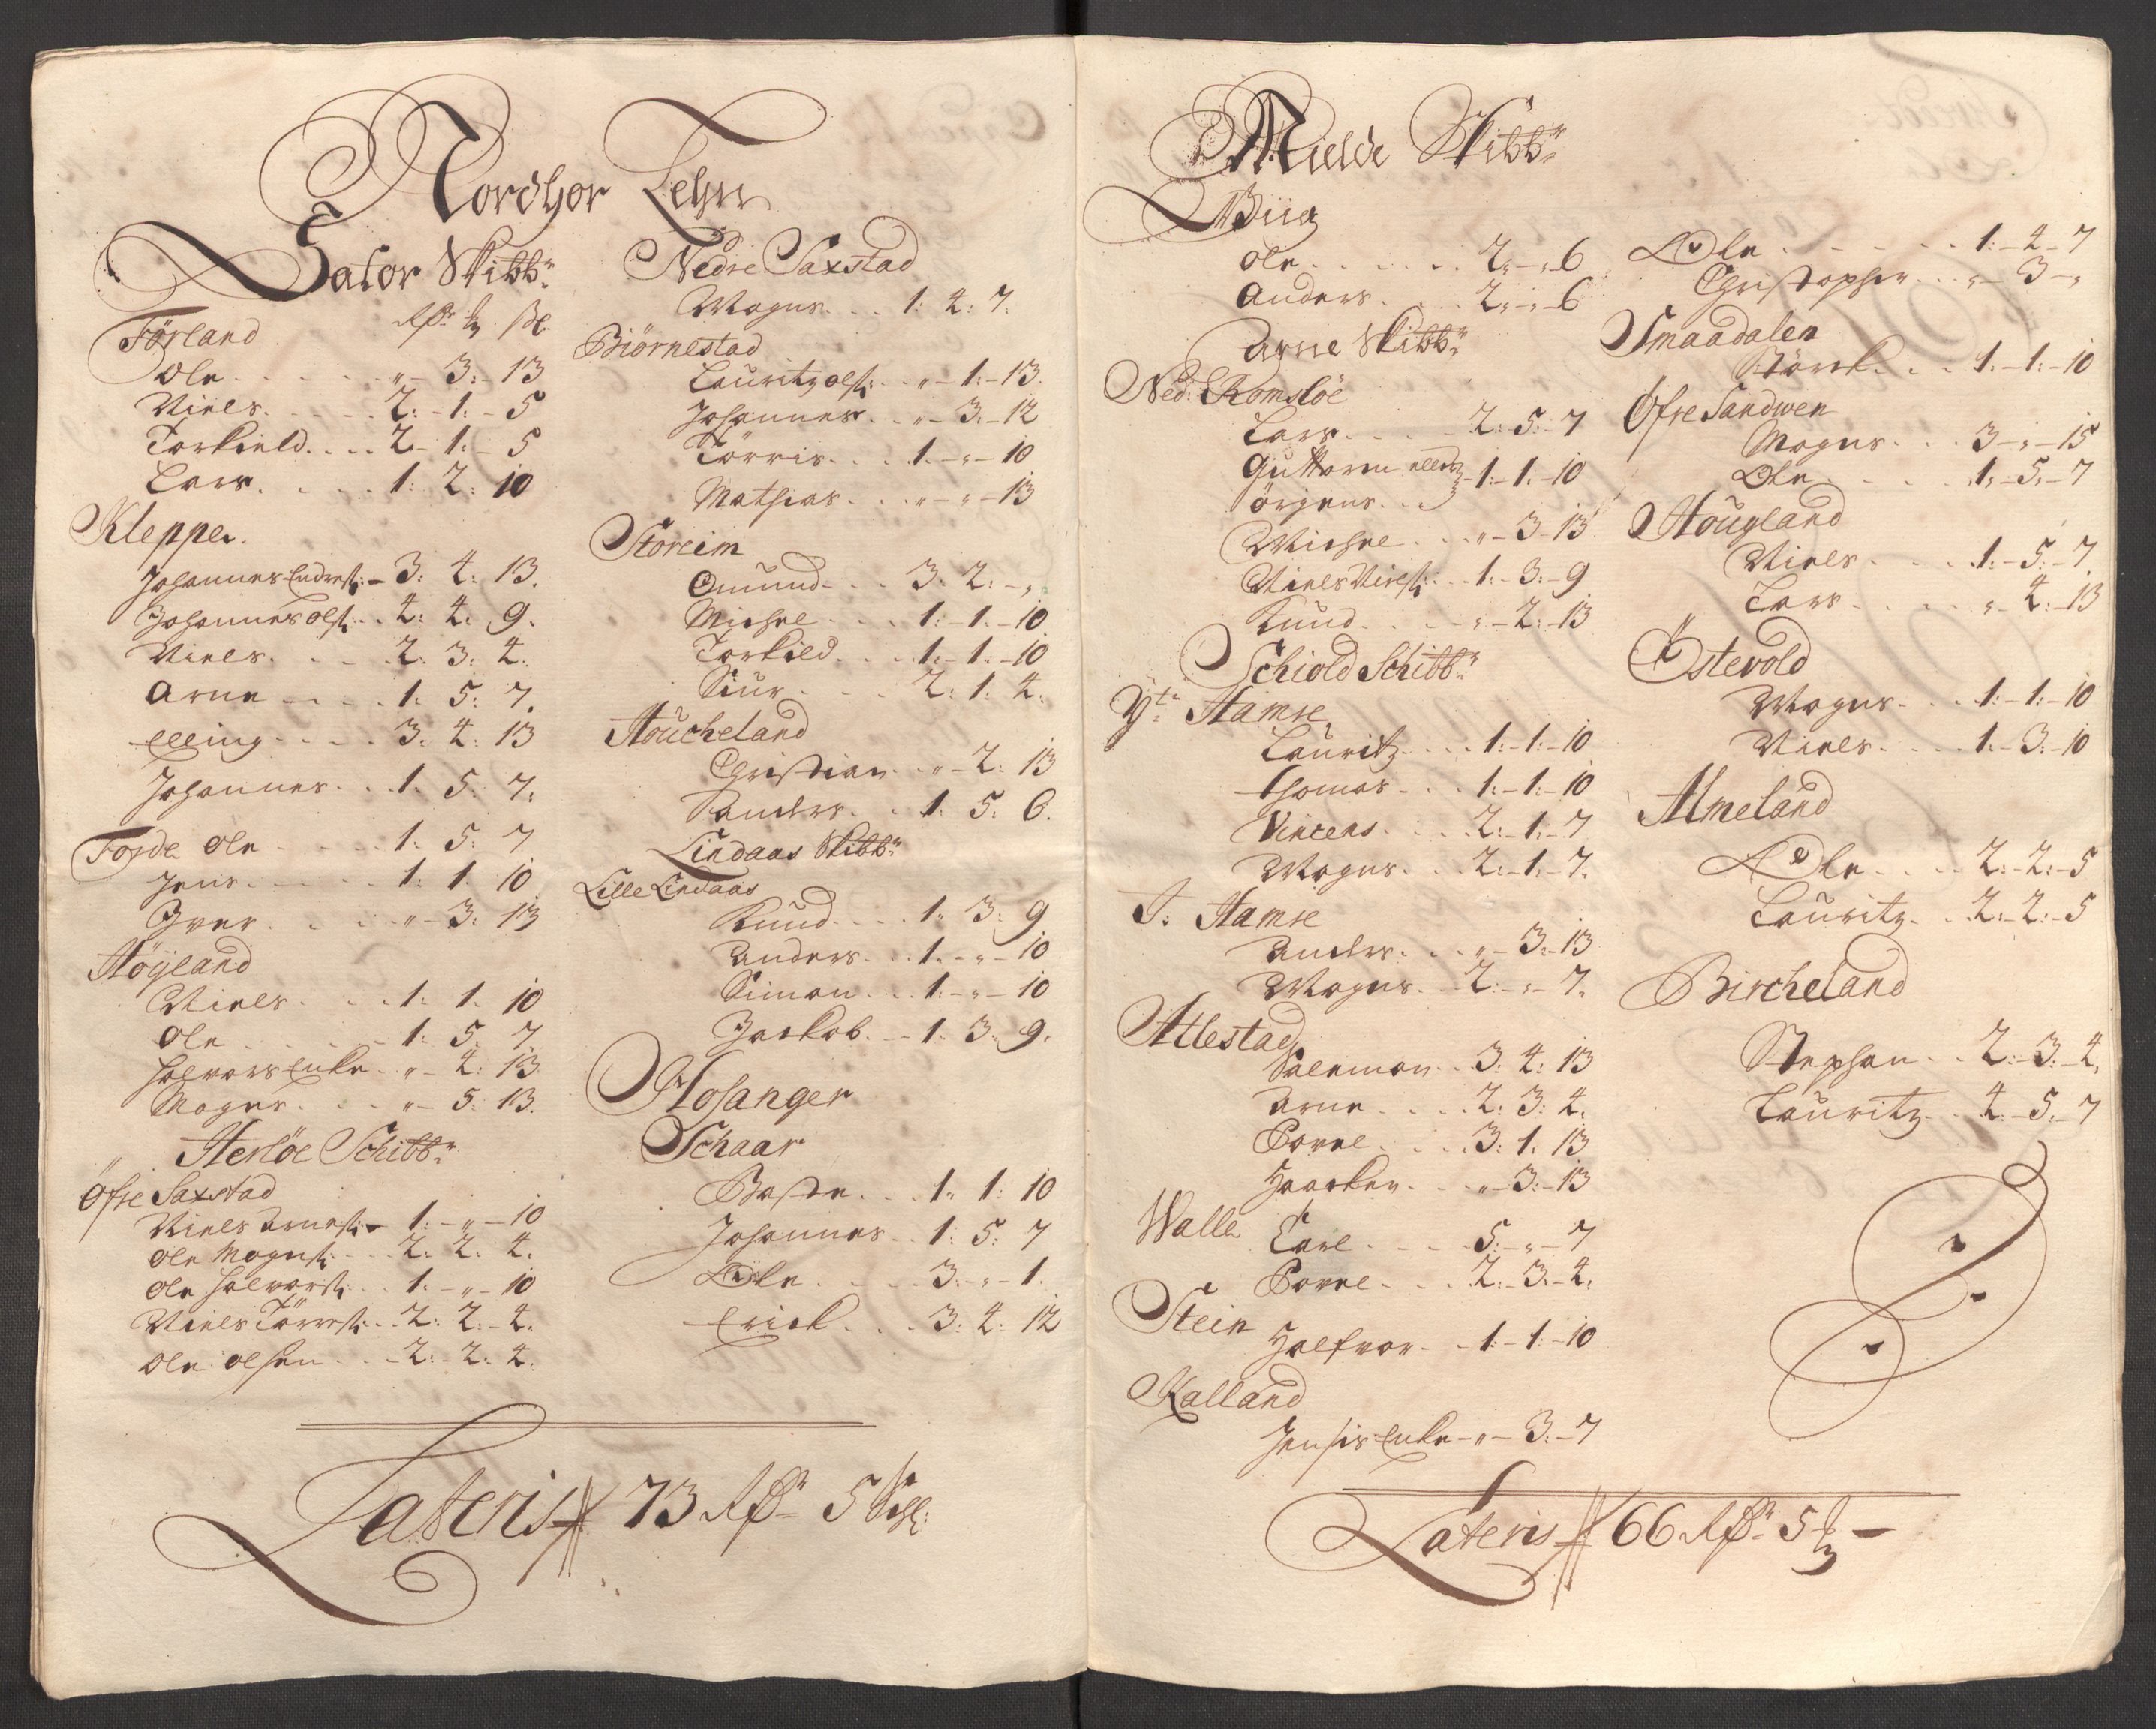 Nordhor Lehn
Sator Skibb:
Rdr mk sk:
Förland
Ole . . . " - 3: - 13
Niels . . . 2: - 1: - 5
Torkield . . . 2 - 1: - 5
Lars . . . 1: 2: 10
Kleppe.
Johannes Endres: - 3: 4: 13.
Johannes ols: . . 4: 4: 9.
Niels . . . 2: 3: 4:
Arne . . . 1: 5: 7.
Elling . . . 3: 4: 13
Johannes . . . 1: 5: 7:
Fosde Ole . . . 1: 5: 7
Jens . . . 1: 1: 10
Iver . . . " - 3: 13
Höyland
Niels . . . 1: 1: 10
Ole . . . 1: 5: 7.
Halvors Enke . . " - 4: 13
Mogns . . . " - 5: 13.
Herlöe Schibb:
Öfre Saxstad
Niels Arnes: - 1: - " - 10
Ole Mogns: . . 2: 2: 4:
Ole Halvors: . . 1: - " - 10
Niels Törres: . . 2: 2: - 4:
Ole Olsen . . . 2: - 2: 4:
Nedre Saxstad
Mogns . . . 1: 4: 7.
Biörnestad
Lauritz ols: . . " - 1: - 13.
Johannes . . " - 3: - 12
Törris . . . 1: - " - 10
Mathias . . . " - " - 13
Storeim
Omund . . . 3: 2: - "
Michel . . . 1: - 1: - 10
Torkild . . . 1: - 1: - 10
Siur . . . 2: 1: 4:
Houcheland
Christian . . " - 2: 13
Anders . . 1: 5: 6.
Lindaas Skibb:
Lille Lindaas
Knud . . . 1: 3: 9
Anders . . . 1: - " - 10
Simon . . . 1: - " - 10
Jackob . . . 1: 3: 9.
Hosanger
Schaar
Baste . . . 1: 1: 10
Johannes . . 1: 5: 7
Ole . . . 3: - " - 1.
Erick . . . 3: 4: 12
Lateris 73 Rdr 5 sk:
Mielde Skibb:
Biig
Ole . . . 2: - " 6
Anders . . . 2: - " 6
Arne Skibb:
Ned: Romslöe
Lars . . . 2: 5: 7
Guttorm eller
Örgens . . . 1: - 1: - 10
Michel . . . " - 3 - 13
Niels Niels: . . 1: - 3: - 9
Knud . . . " - 2: - 13
Schiold Schibb:
Yt: Hamre
Lauritz . . . 1: - 1: - 10
Thomas . . . 1: - 1: - 10
Vincens . . . 2: - 1: - 7
Mogns . . . 2: - 1: - 7.
I: Hamre
Anders . . . " - 3: - 13
Mogns . . 2: - " - 7.
Atlestad
Salemon . . 3: 4: 13
Arne . . . 2: 3: 4.
Povel . . . 3: 1: 13
Haacken . . . " - 3: - 13
Walle Carl . . . 5: - " - 7
Povel . . . 2: - 3: - 4.
Stein Halfvor . . 1: - 1: - 10
Kalland
Jensis Enke - " - 3: - 7
Ole . . . 1: - 4 - 7
Christopher . . . " - 3 - "
Smaadalen
Störck . . . 1: - 1: - 10
Öfre Sandwen
Mogns . . . 3 - " - 15
Ole . . . 1: - 5: - 7
Hougland
Niels . . . 1: - 5: - 7
Lars . . . " - 4: - 13
Östevold
Mogns . . . 1: - 1: - 10
Niels . . . 1: - 3: - 10
Almeland
Ole . . . 2: - 2: - 5
Lauritz . . 2: - 2: - 5
Bircheland
Stephen . . 2: - 3: - 4.
Lauritz . . 4: - 5: - 7
Lateris 66 Rdr 5 mk -